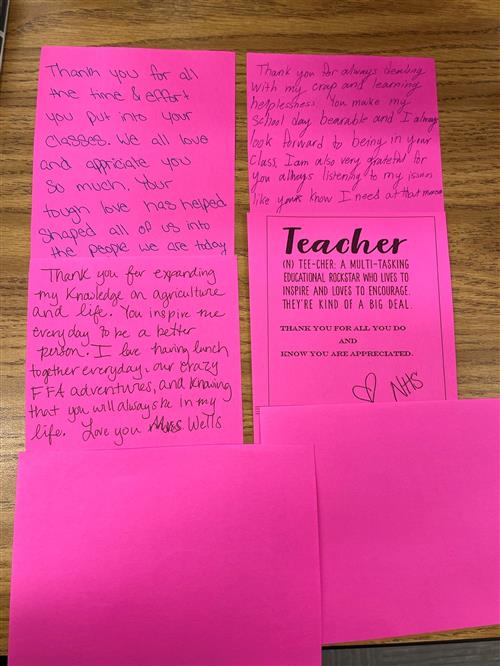 Thank you for all
the time & effort
you put into your
classes. We all love
and appriciate you
so much. Your
tough love has helped
shaped all of us into
the people we are today
Thank you for always dealing
with my crap and learning
helplessness. You make my
school day bearable and I always
look forward to being in your
class. I am also very grateful for
you always listening to my issues
like you know I need at that moment
Thank you for expanding
my knowledge on agriculture
and life. You inspire me
everyday to be a better
person. I love having lunch
together everyday, our crazy
FFA adventures, and knowing
that you will always be in my
life. Love you Mrs. Wells
Teacher
(N) TEE-CHER: A MULTI-TASKING
EDUCATIONAL ROCKSTAR WHO LIVES TO
INSPIRE AND LOVES TO ENCOURAGE.
THEY'RE KIND OF A BIG DEAL.
THANK YOU FOR ALL YOU DO
AND
KNOW YOU ARE APPRECIATED.
♡ NHS